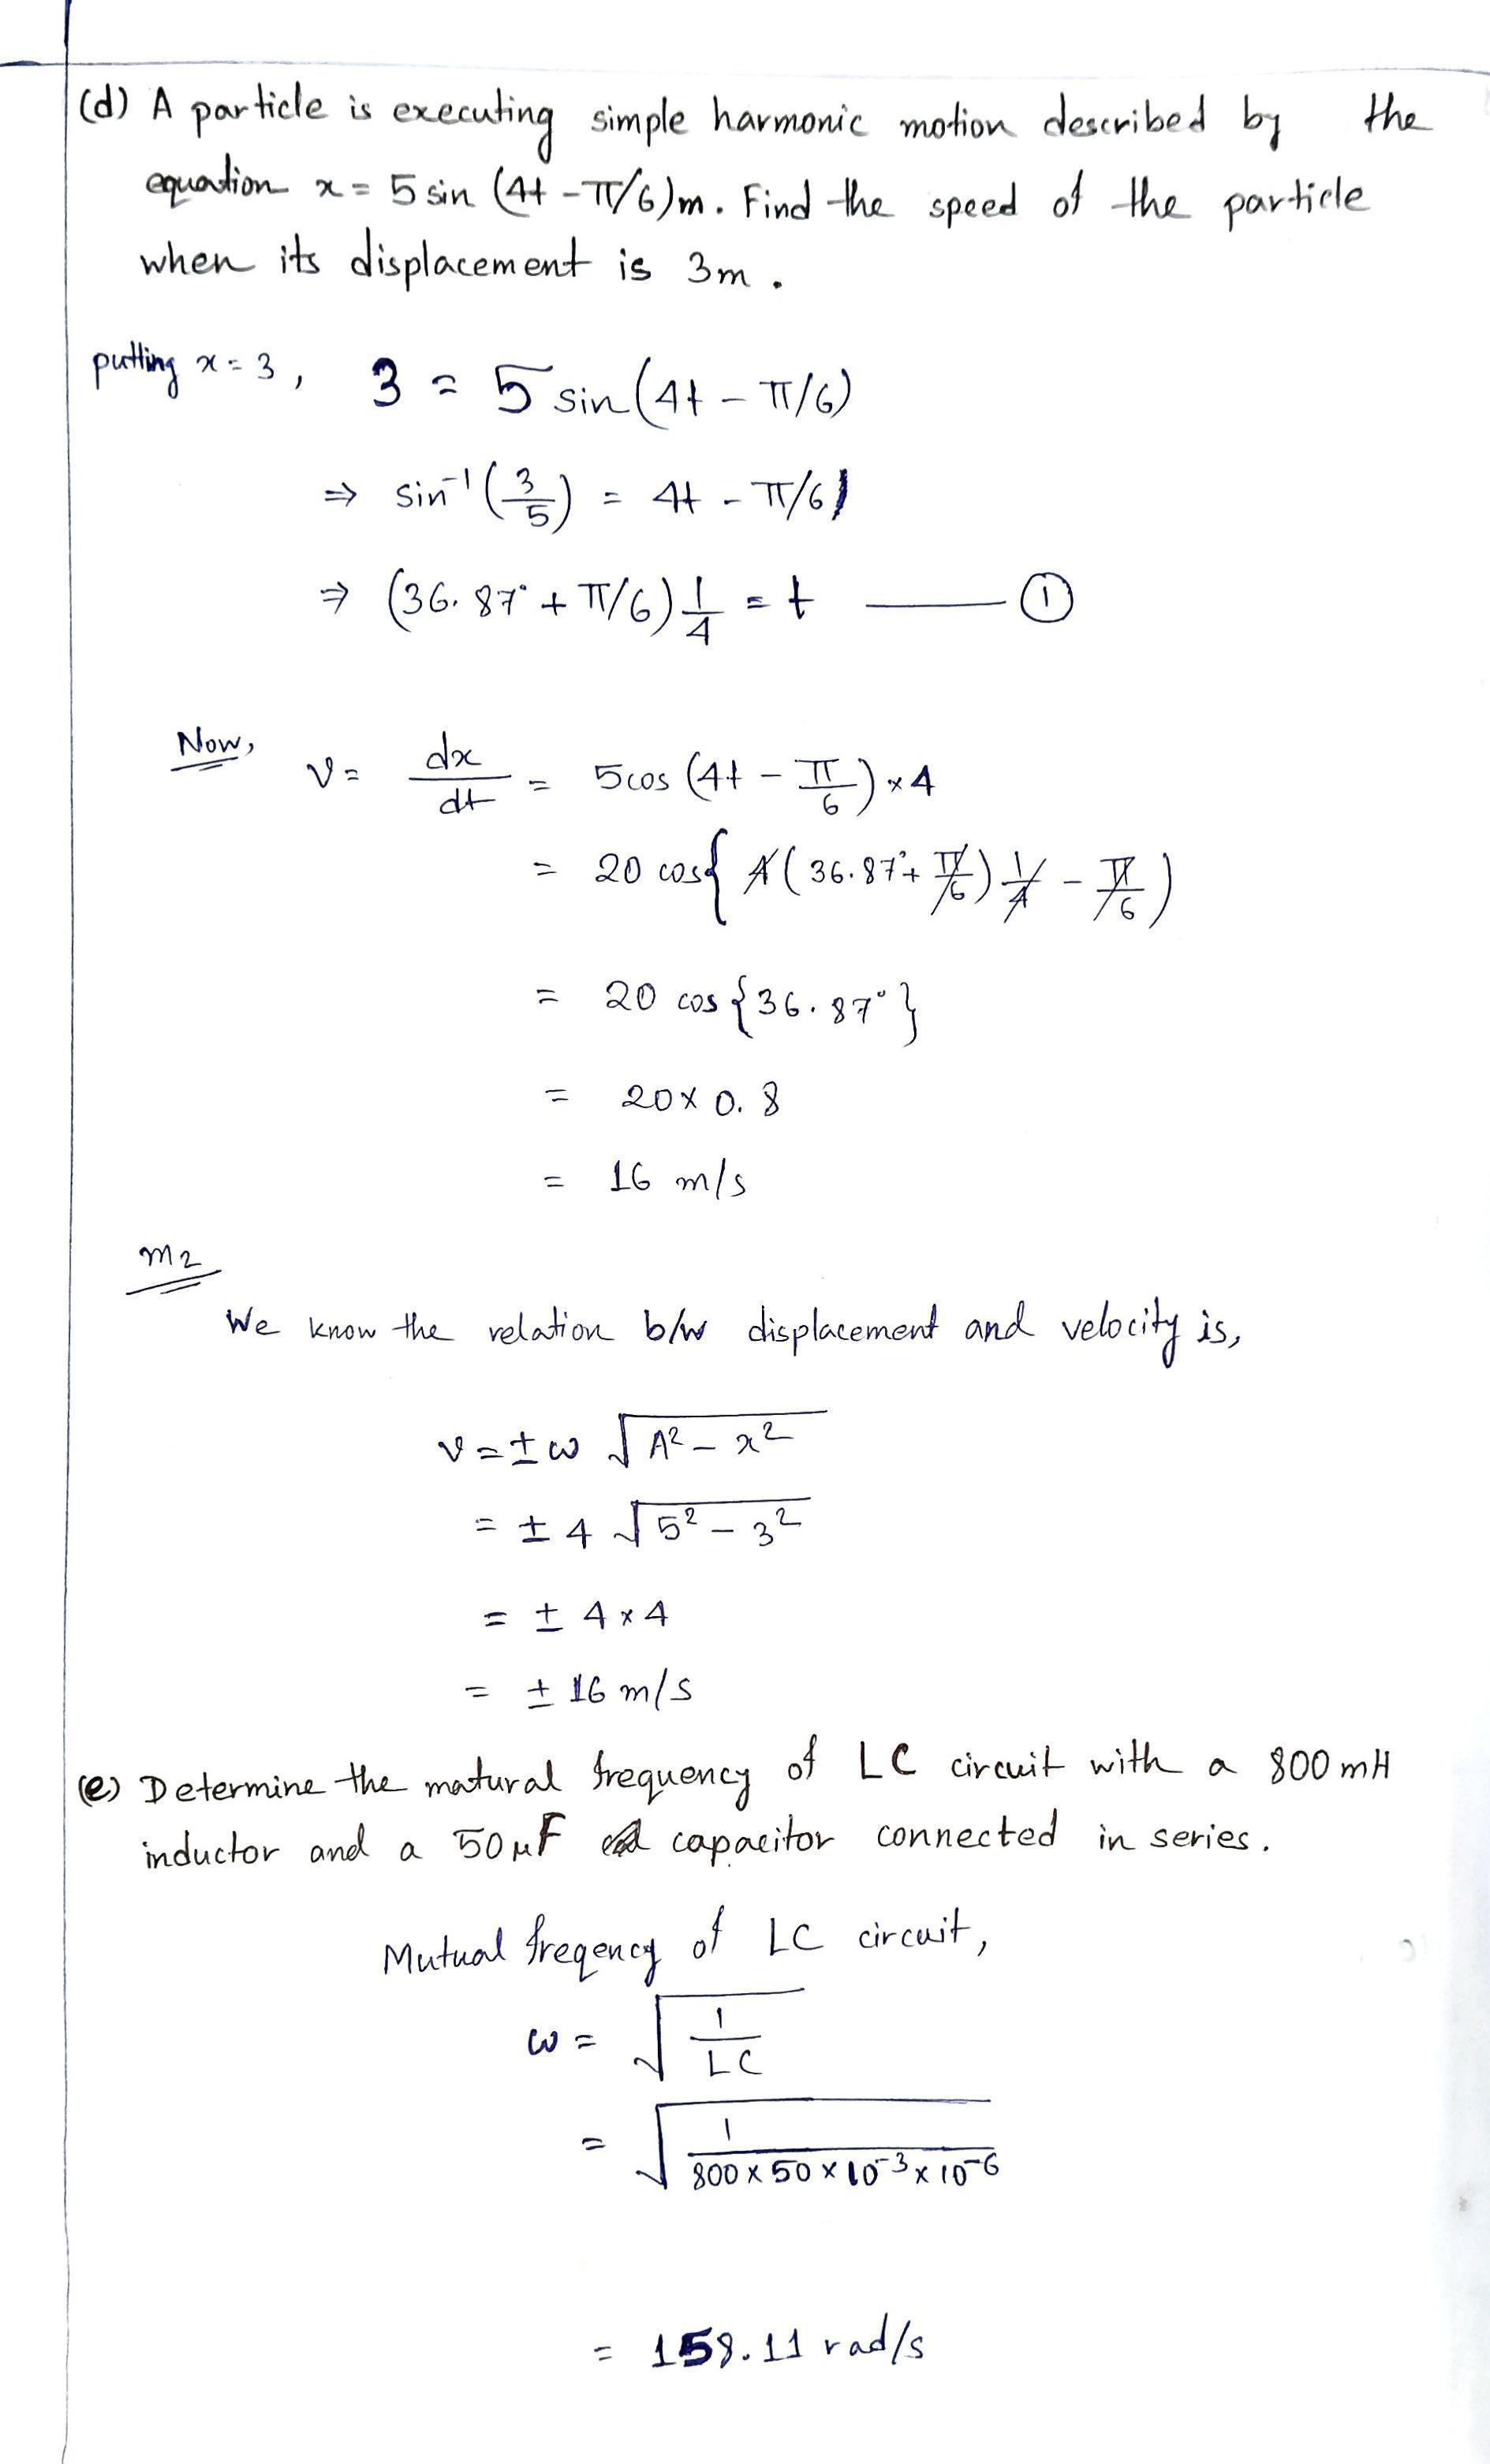 (d) A particle is executing simple harmonic motion described by the
equation x = 5 sin (4t - π/6)m. Find the speed of the particle
when its displacement is 3m.
putting x = 3, 3 = 5 sin(4t - π/6)
⇒ sin⁻¹(3/5) = 4t - π/6)
⇒ (36.87° + π/6) 1/4 = t —— ①
Now, v = dx/dt = 5cos (4t - π/6) × 4
= 20 cos{ 4(36.87° + π/6) 1/4 - π/6 )
= 20 cos {36.87°}
= 20 × 0.8
= 16 m/s
m2
We know the relation b/w displacement and velocity is,
v = ± ω √(A² - x²)
= ± 4 √(5² - 3²)
= ± 4 × 4
= ± 16 m/s
(e) Determine the matural frequency of LC circuit with a 800 mH
inductor and a 50 μF capacitor connected in series.
Mutual freqency of LC circuit,
ω = √(1/LC)
= √(1/800 × 50 × 10⁻³ × 10⁻⁶)
= 158.11 rad/s